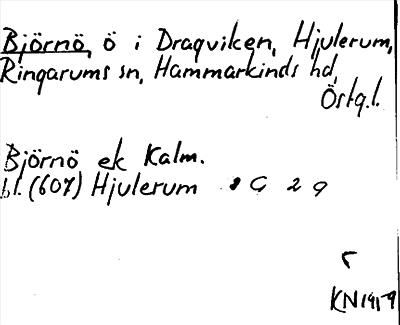 Björnö, ö i Dragviken, Hjulerum,
Ringarums sn, Hammarkinds hd,
Östg.l.
Björnö ek Kalm.
bl. (607) Hjulerum 8 G 2 g
KN 1959